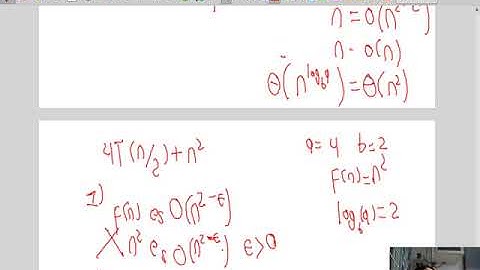 n = O(n^{2-ε})
n = O(n)
Θ(n^{log_b a}) = Θ(n²)
4T(n/2) + n²
a = 4 b = 2
F(n) = n²
log_b(a) = 2
1)
f(n) es O(n^{2-ε})
n² es O(n^{2-ε}) ε > 0